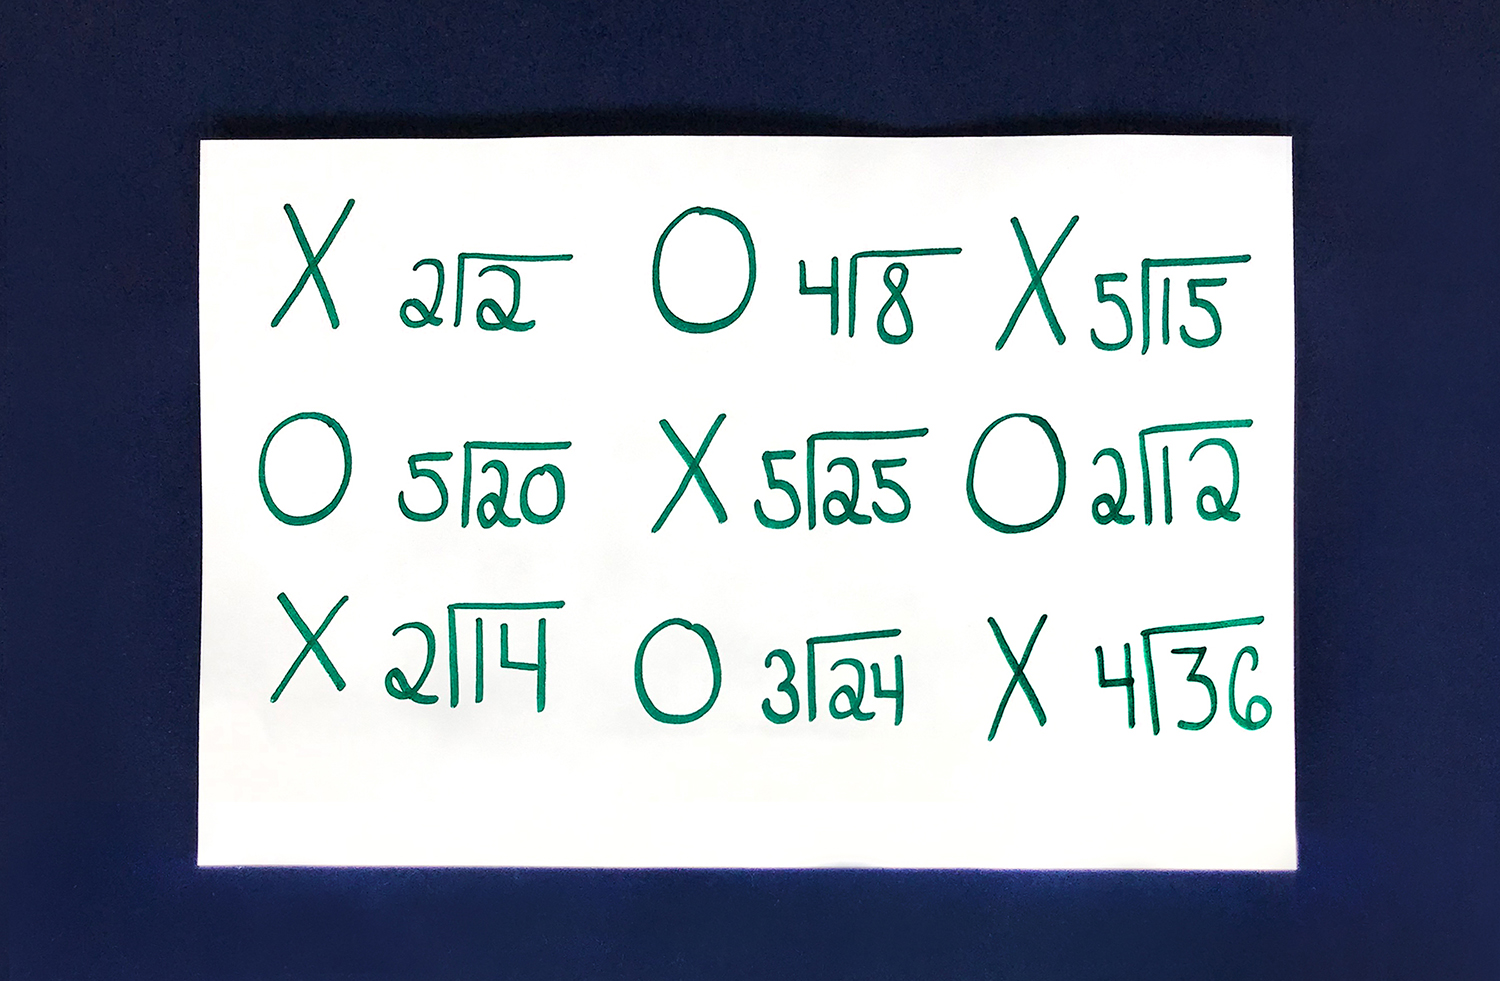 X 2⟌2 O 4⟌8 X 5⟌15
O 5⟌20 X 5⟌25 O 2⟌12
X 2⟌14 O 3⟌24 X 4⟌36